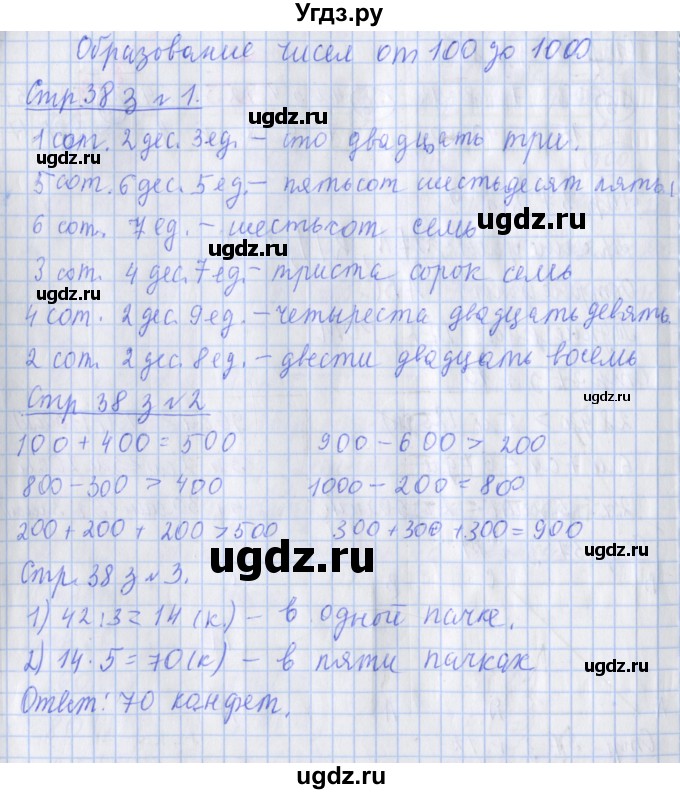 Угдз.ру
Образование чисел от 100 до 1000
ugdz.ru
Стр 38 з № 1.
ugdz.ru
1 сот. 2 дес. 3 ед. – сто двадцать три.
ugdz.ru
5 сот. 6 дес. 5 ед. – пятьсот шестьдесят пять.
6 сот. 7 ед. – шестьсот семь
ugdz.ru
3 сот. 4 дес. 7 ед. – триста сорок семь
4 сот. 2 дес. 9 ед. – четыреста двадцать девять.
ugdz.ru
2 сот. 2 дес. 8 ед. – двести двадцать восемь
ugdz.ru
Стр 38 з № 2
ugdz.ru
100 + 400 = 500 900 – 600 > 200
800 – 300 > 400 1000 – 200 = 800
200 + 200 + 200 > 500 300 + 300 + 300 = 900
ugdz.ru
ugdz.ru
Стр. 38 з № 3.
1) 42 : 3 = 14 (к) – в одной пачке.
ugdz.ru
2) 14 · 5 = 70 (к) – в пяти пачках
ugdz.ru
Ответ: 70 конфет.
ugdz.ru